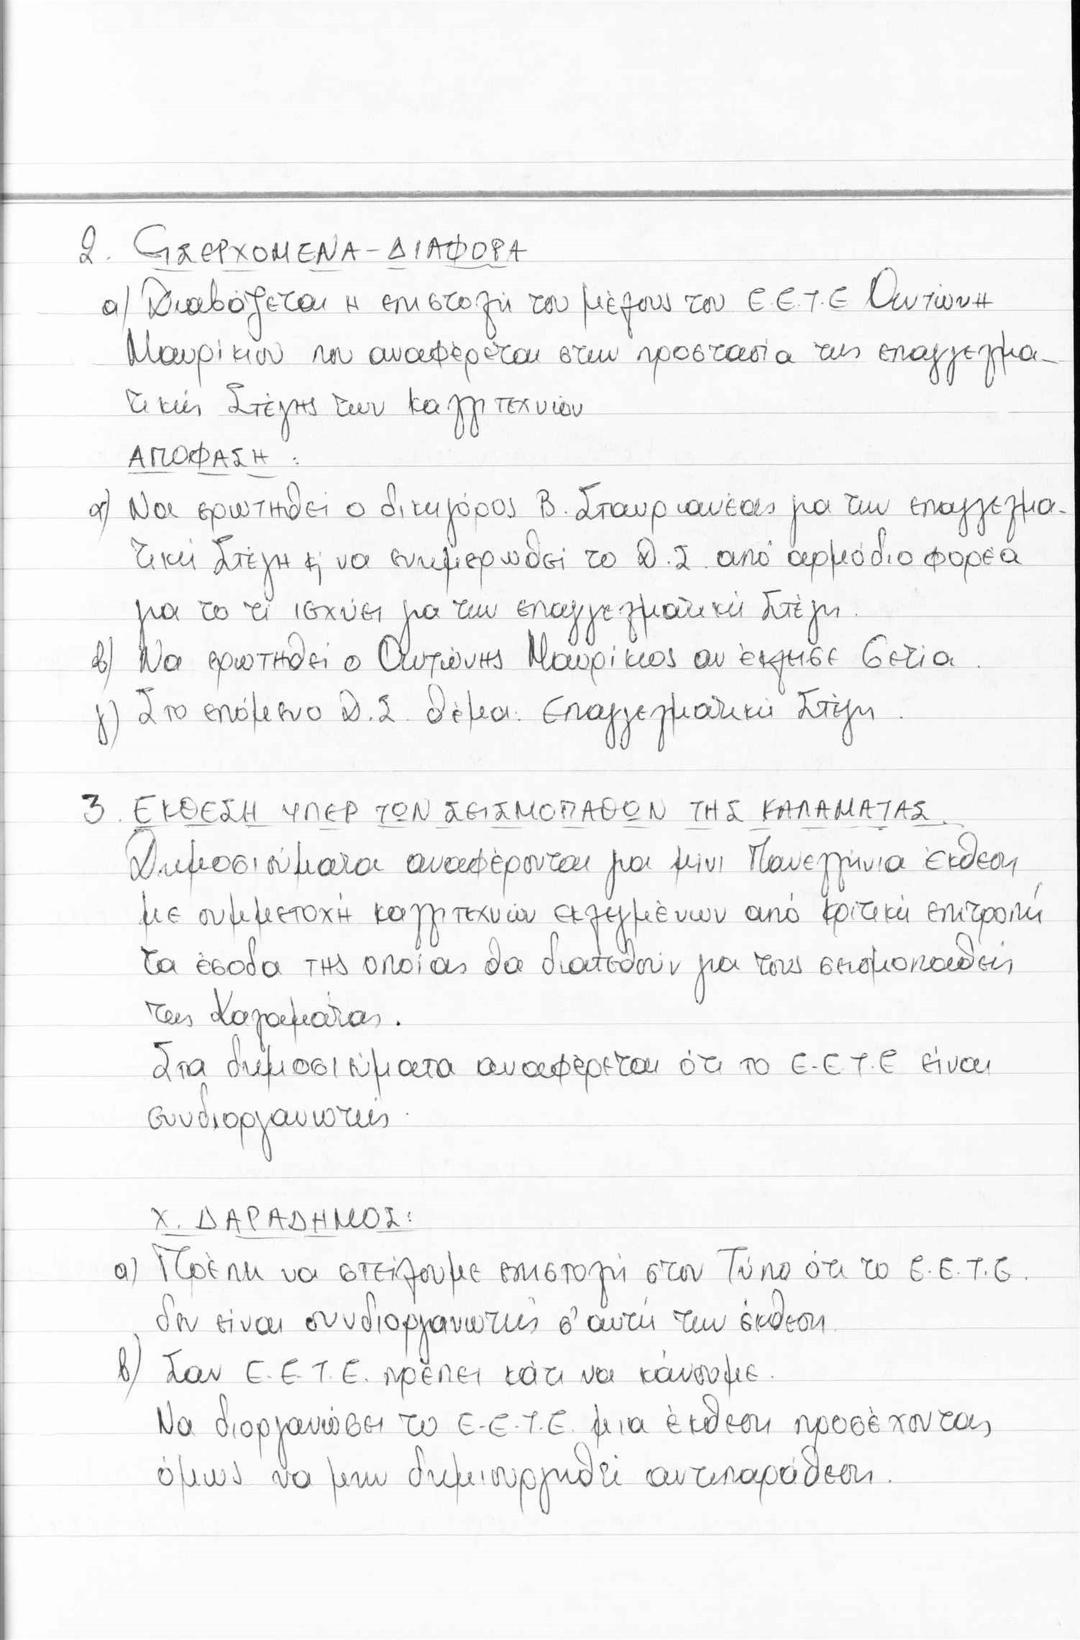 2. ΕΙΣΕΡΧΟΜΕΝΑ-ΔΙΑΦΟΡΑ
α) Διαβάζεται η επιστολή του μέλους του Ε.Ε.Τ.Ε Αντώνη
Μαυρίκιου που αναφέρεται στην προστασία της επαγγελμα-
τικής Στέγης των καλλιτεχνών
ΑΠΟΦΑΣΗ :
α) Να ερωτηθεί ο δικηγόρος Β. Σταυριανέας για την επαγγελμα-
τική Στέγη & να ενημερωθεί το Δ.Σ. από αρμόδιο φορέα
για το τί ισχύει για την επαγγελματική Στέγη.
β) Να ερωτηθεί ο Αντώνης Μαυρίκιος αν έκλεισε 6ετία.
γ) Στο επόμενο Δ.Σ. θέμα: Επαγγελματική Στέγη.
3. ΕΚΘΕΣΗ ΥΠΕΡ ΤΩΝ ΣΕΙΣΜΟΠΑΘΩΝ ΤΗΣ ΚΑΛΑΜΑΤΑΣ.
Δημοσιεύματα αναφέρονται για μίνι Πανελλήνια έκθεση
με συμμετοχή καλλιτεχνών εκλεγμένων από κριτική επιτροπή
τα έσοδα της οποίας θα διατεθούν για τους σεισμοπαθείς
της Καλαμάτας.
Στα δημοσιεύματα αναφέρεται ότι το Ε.Ε.Τ.Ε είναι
συνδιοργανωτής.
Χ. ΔΑΡΑΔΗΜΟΣ:
α) Πρέπει να στείλουμε επιστολή στον Τύπο ότι το Ε.Ε.Τ.Ε.
δεν είναι συνδιοργανωτής σ' αυτή την έκθεση.
β) Σαν Ε.Ε.Τ.Ε. πρέπει κάτι να κάνουμε.
Να διοργανώσει το Ε.Ε.Τ.Ε. μια έκθεση προσέχοντας
όμως να μην δημιουργηθεί αντιπαράθεση.